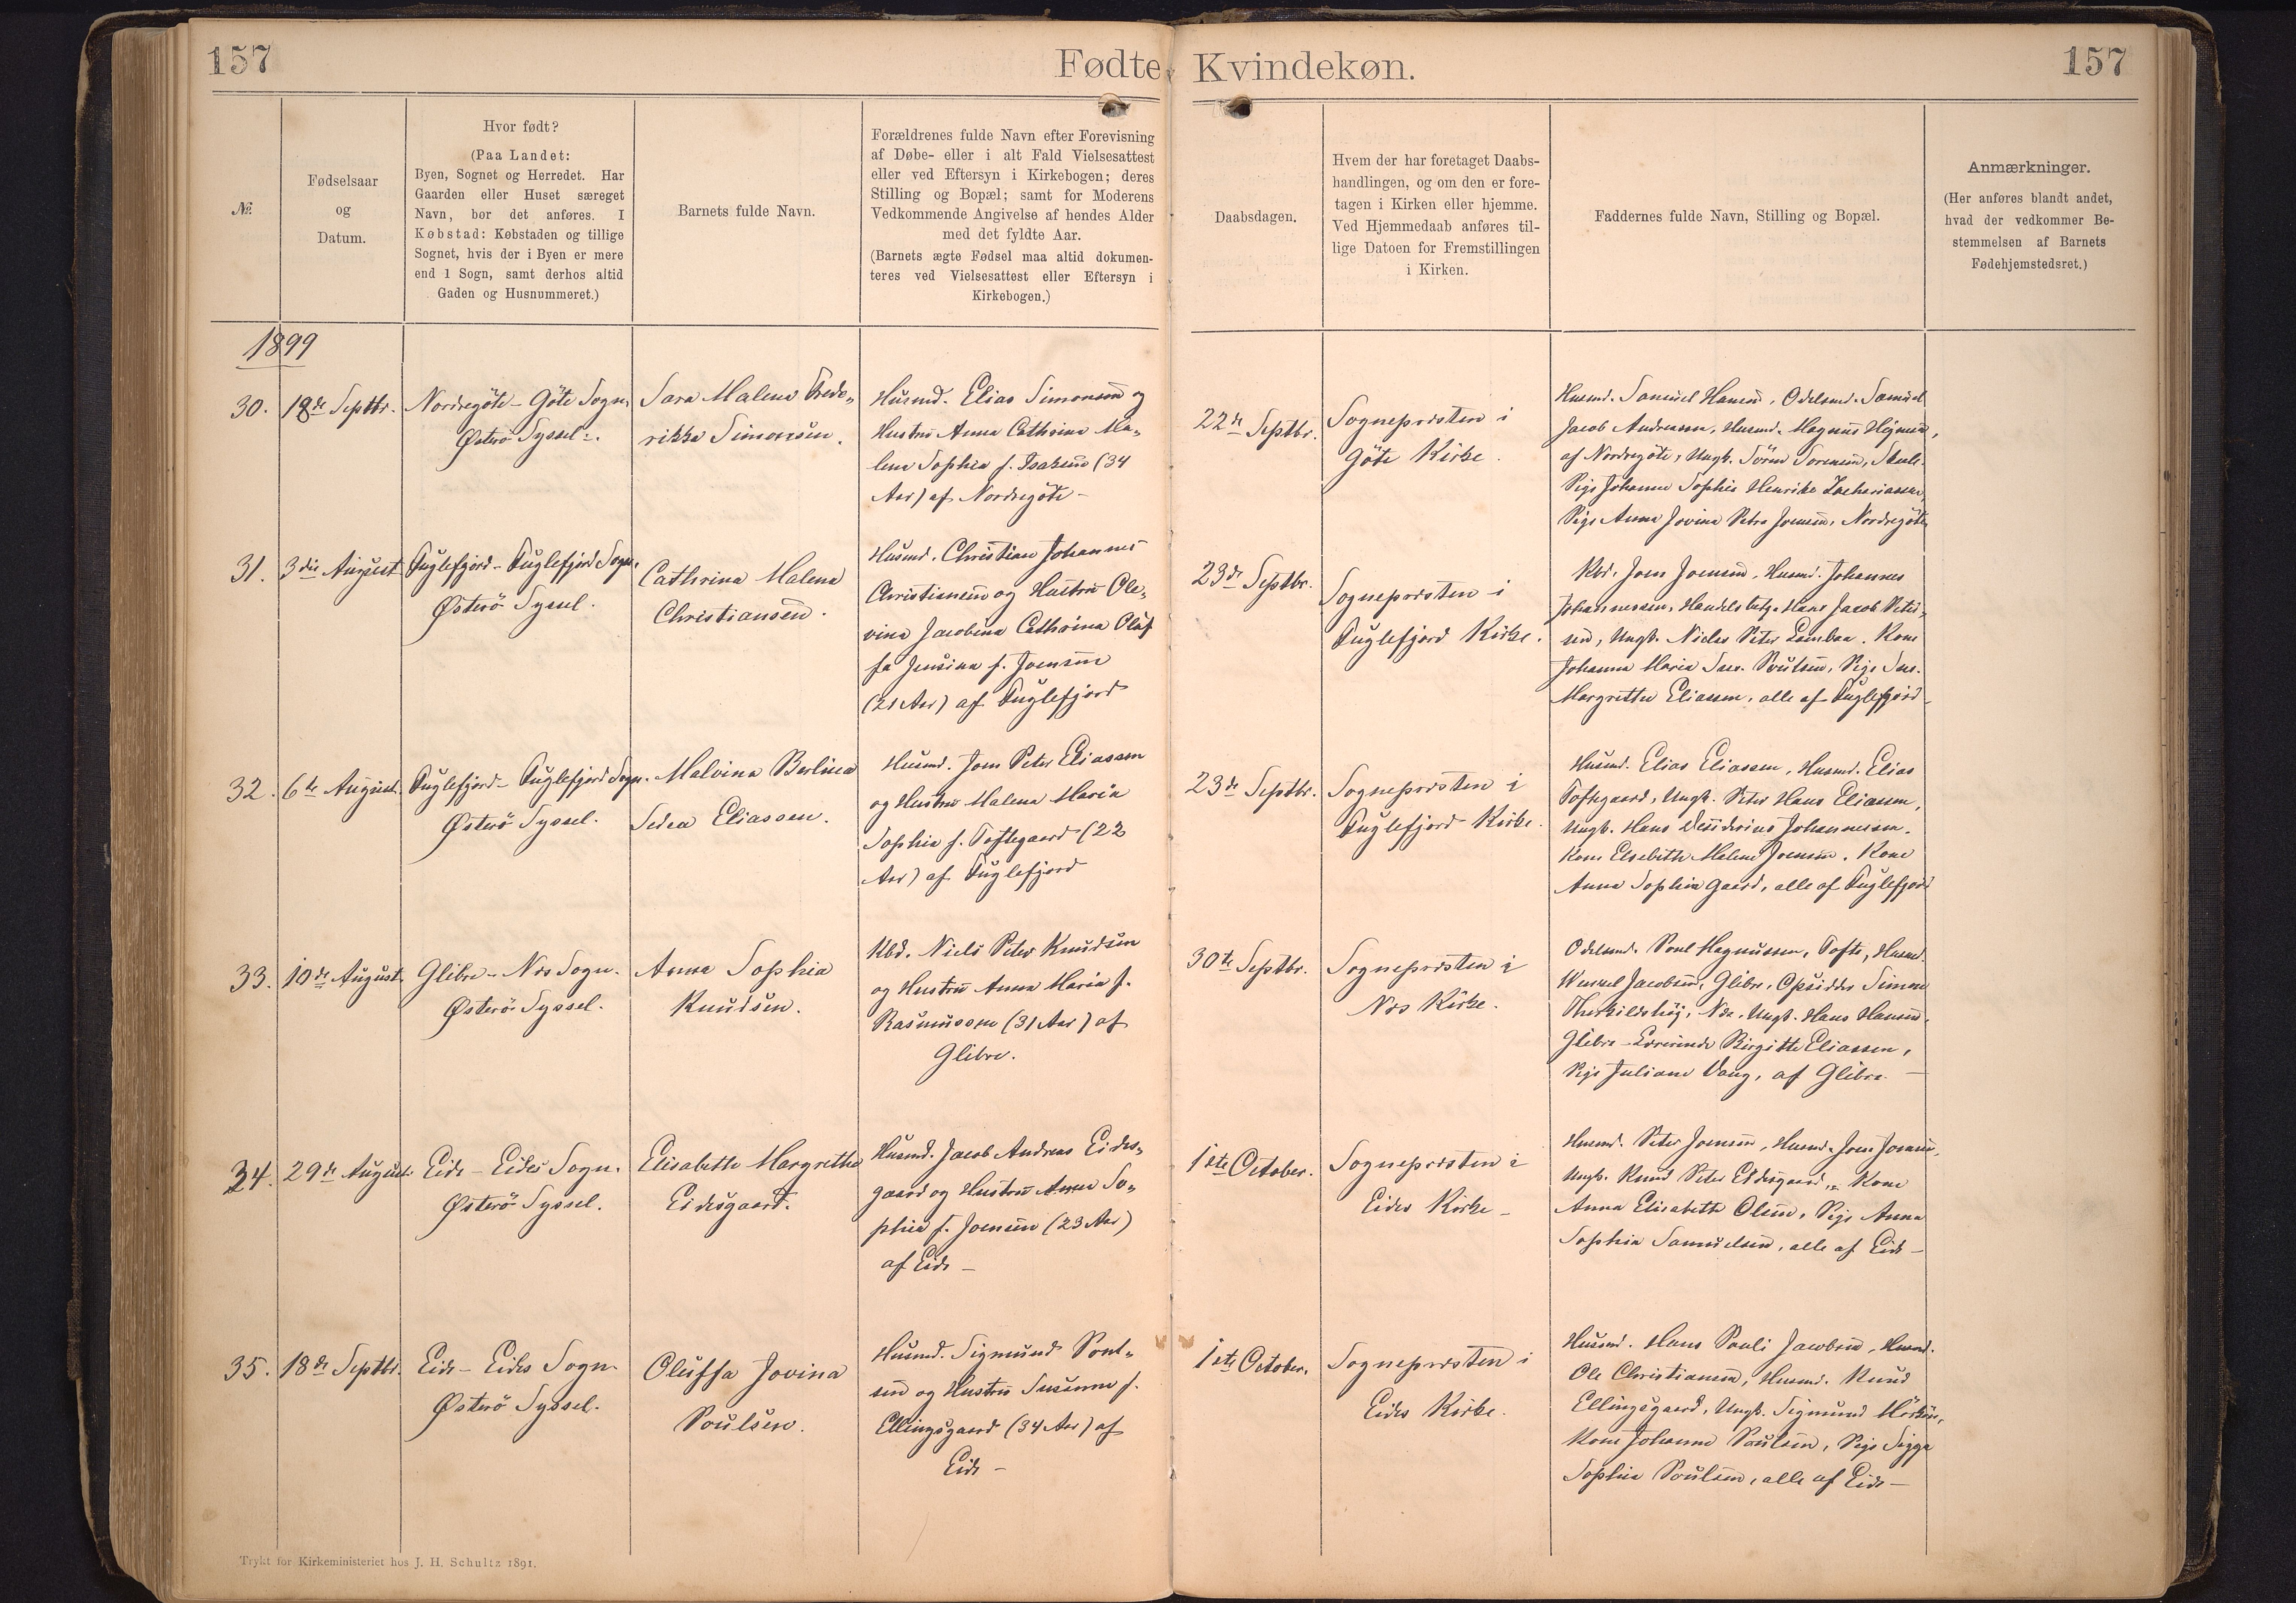 157
Fødte Kvindekøn.
157
№
Fødselsaar
og
Datum.
Hvor født?
(Paa Landet:
Byen, Sognet og Herredet. Har
Gaarden eller Huset særeget
Navn, bør det anføres. I
Købstad: Købstaden og tillige
Sognet, hvis der i Byen er mere
end 1 Sogn, samt derhos altid
Gaden og Husnummeret.)
Barnets fulde Navn.
Forældrenes fulde Navn efter Forevisning
af Døbe- eller i alt Fald Vielsesattest
eller ved Eftersyn i Kirkebogen; deres
Stilling og Bopæl; samt for Moderens
Vedkommende Angivelse af hendes Alder
med det fyldte Aar.
(Barnets ægte Fødsel maa altid dokumen-
teres ved Vielsesattest eller Eftersyn i
Kirkebogen.)
Daabsdagen.
Hvem der har foretaget Daabs-
handlingen, og om den er fore-
tagen i Kirken eller hjemme.
Ved Hjemmedaab anføres til-
lige Datoen for Fremstillingen
i Kirken.
Faddernes fulde Navn, Stilling og Bopæl.
Anmærkninger.
(Her anføres blandt andet,
hvad der vedkommer Be-
stemmelsen af Barnets
Fødehjemstedsret.)
1899
30.
18de Septbr.
Nordregöte - Göte Sogn,
Østerö Syssel.
Sara Malena Frede-
rikka Simonsen.
Husmd. Elias Simonsen og
Hustru Anna Cathrine Ma-
lene Sophia f. Isaksen (34
Aar) af Nordregöte -
22de Septbr.
Sognepræsten i
Göte Kirke.
Husmd. Samuel Hansen, Odelsmd. Samuel
Jacob Andreasen, Husmd. Magnus
af Nordregöte, Ungk. Sören Sorensen,
Pige Johanne Sophie Henrike Zachariassen,
Pige Anna Jovina Petra Joensen, Nordregöte
31.
3die August
Fuglefjord - Fuglefjord Sogn.
Østerö Syssel.
Cathrina Malena
Christiansen.
Husmd. Christian Johannes
Christiansen og Hustru Ole-
vina Jacobina Cathrina Oluf
fa Jensina f. Joensen
(21 Aar) af Fuglefjord
23de Septbr.
Sognepræsten i
Fuglefjord Kirke.
Kbd. Joen Joensen, Husmd. Johannes
Johannessen, Handelsbetj. Hans Jacob Peter-
sen, Ungk. Niclas Peter Lambaa. Kone
Johanna Maria Sus. Poulsen, Pige Sus.
Margrethe Eliasen, alle af Fuglefjord -
32.
6te August.
Fuglefjord - Fuglefjord Sogn.
Østerö Syssel.
Malvina Berlina
Sedea Eliassen.
Husmd. Joen Peter Eliassen
og Hustru Malena Maria
Sophia f. Toftegaard (22
Aar) af Fuglefjord
23de Septbr.
Sognepræsten i
Fuglefjord Kirke.
Husmd. Elias Eliassen, Husmd. Elias
Toftegaard, Ungk. Peter Hans Eliassen,
Ungk. Hans Desiderius Johannesen.
Kone Elsebeth Malene Joensen. Kone
Anna Sophia Gaard, alle af Fuglefjord
33.
10de August.
Glibre - Nœs Sogn.
Østerö Syssel.
Anna Sophia
Knudsen.
Kbd. Niels Peter Knudsen
og Hustru Anna Maria f.
Rasmussen (31 Aar) af
Glibre.
30te Septbr.
Sognepræsten i
Nœs Kirke.
Odelsmd. Poul Magnussen, Tofte, Husmd.
Wenzel Jacobsen, Glibre, Opsidder Simon
Therkildshöj, Nœs, Ungk. Hans Hansen,
Glibre - Lœrerinde Birgitte Eliassen,
Pige Juliane Vang, af Glibre. -
34.
29de August.
Eide - Eides Sogn.
Østerö Syssel.
Elisabeth Margrethe
Eidesgaard.
Husmd. Jacob Andreas Eides-
gaard og Hustru Anna So-
phia f. Joensen (23 Aar)
af Eide -
1ste October.
Sognepræsten i
Eides Kirke -
Husmd. Peter Joensen, Husmd. Joen Joensen,
Ungk. Knud Peter Eidesgaard, Kone
Anna Elisabeth Olsen, Pige Anna
Sophia Samuelsen, alle af Eide -
35.
18de Septbr.
Eide - Eides Sogn
Østerö Syssel.
Oluffa Jovina
Poulsen.
Husmd. Sigmund Poul-
sen og Hustru Susanne f.
Ellingsgaard (34 Aar) af
Eide -
1ste October.
Sognepræsten i
Eides Kirke.
Husmd. Hans Pauli Jacobsen, Husmd.
Ole Christiansen, Husmd. Knud
Ellingsgaard, Ungk. Sigmund
Kone Johanne Poulsen, Pige Sigga
Sophia Poulsen, alle af Eide -
Trykt for Kirkeministeriet hos J. H. Schultz 1891.